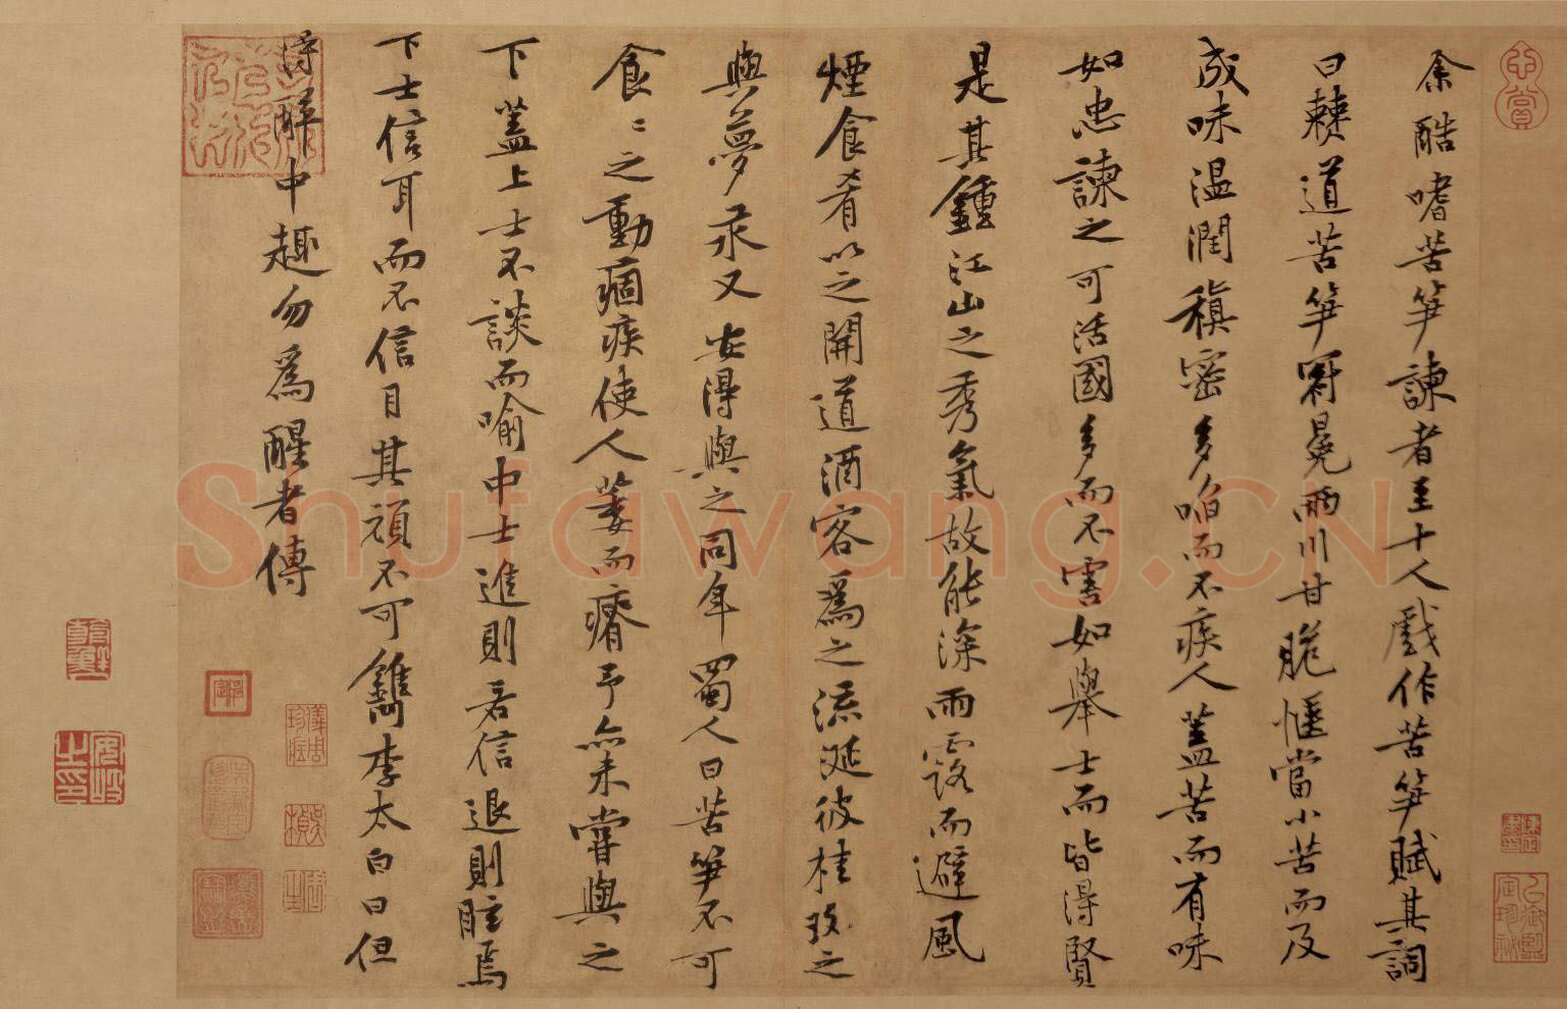 余酷嗜苦筍諫者至十人戲作苦筍賦其詞
曰僰道苦筍冠冕兩川甘脆愜當小苦而及
成味温潤稹密多啗而不疾人蓋苦而有味
如忠諫之可活國多而不害如舉士而皆得賢
是其鍾江山之秀氣故能深雨露而避風
煙食肴以之開道酒客爲之流涎彼桂玫之
與夢永又安得與之同年蜀人曰苦筍不可
食〻之動痼疾使人萎而瘠予亦未嘗與之
下蓋上士不談而喻中士進則若信退則眩焉
下士信耳而不信目其頑不可鐫李太白曰但
得醉中趣勿爲醒者傳
心賞
儀周珍藏
安岐之印
Shufawang.CN